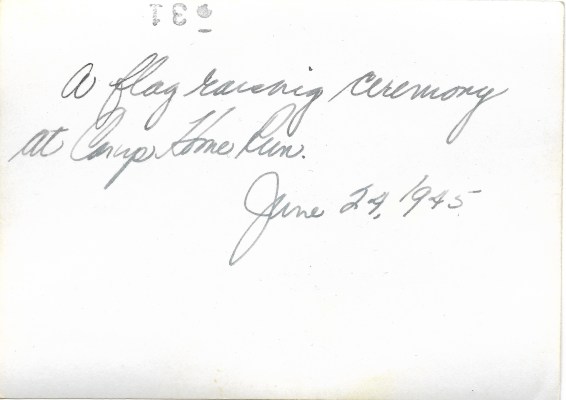 31
A flag raising ceremony
at Camp Home Run.
June 24, 1945